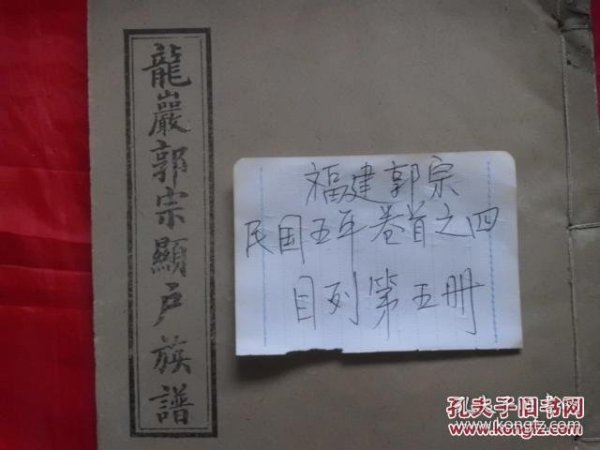 龍巖郭宗顯戶族譜
福建郭宗
民国五年卷首之四
目列第五册
孔夫子旧书网
www.kongfz.com